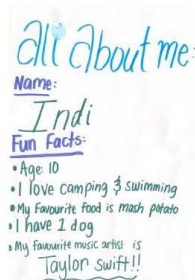 all about me:
Name:
Indi
Fun Facts:
• Age: 10
• I love camping & swimming
• My Favourite food is mash potato
• I have 1 dog
• My favourite music artist is
Taylor swift!!